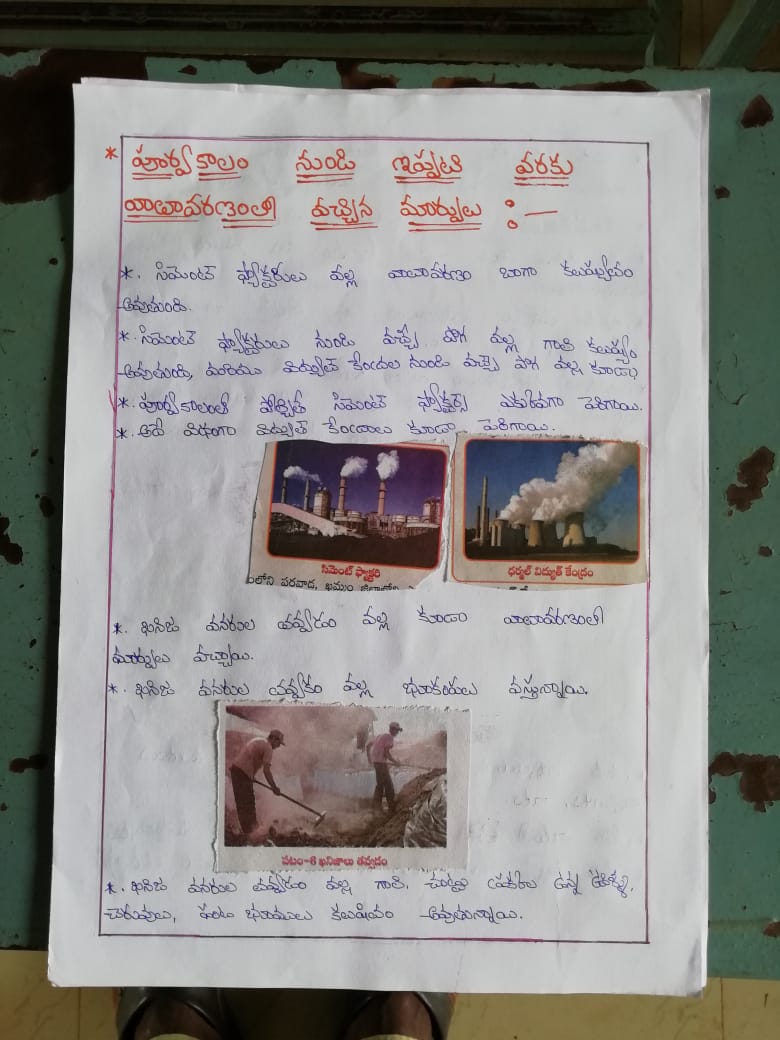 * పూర్వకాలం నుండి ఇప్పటి వరకు
వాతావరణంతో వచ్చిన మార్పులు :—
*. సిమెంట్ ఫ్యాక్టరీలు వల్ల వాతావరణం బాగా కలుష్యతం
అవుతుంది.
*. సిమెంట్ ఫ్యాక్టరులు నుండి వచ్చే పొగ వల్ల గాలి కలుష్యం
అవుతుంది, మరియు విద్యుత్ కేంద్రల నుండి వచ్చే పొగ వల్ల కూడా
*. పూర్వకాలంతో పోల్చితే సిమెంట్ ఫ్యాక్టర్స్ ఎకువగా పెరిగాయి.
*. అదే విధంగా విద్యుత్ కేంద్రాలు కూడా పెరిగాయి.
సిమెంట్ ఫ్యాక్టరీ
ధర్మల్ విద్యుత్ కేంద్రం
లోని పరవాడ, ఖమ్మం
*. ఖనిజ వనరుల తవ్వడం వల్ల కూడా వాతావరణంతో
మార్పులు వచ్చాయి.
*. ఖనిజ వనరుల తవ్వకం వల్ల భూకంపలు వస్తున్నాయి.
పటం-6 ఖనిజాలు తవ్వడం
*. ఖనిజ వనరుల తవ్వడం వల్ల గాలి, చుట్టూ ఉన్న ఊర్ళు,
చెరువులు, పంట భూములు కలుషితం అవుతున్నాయి.